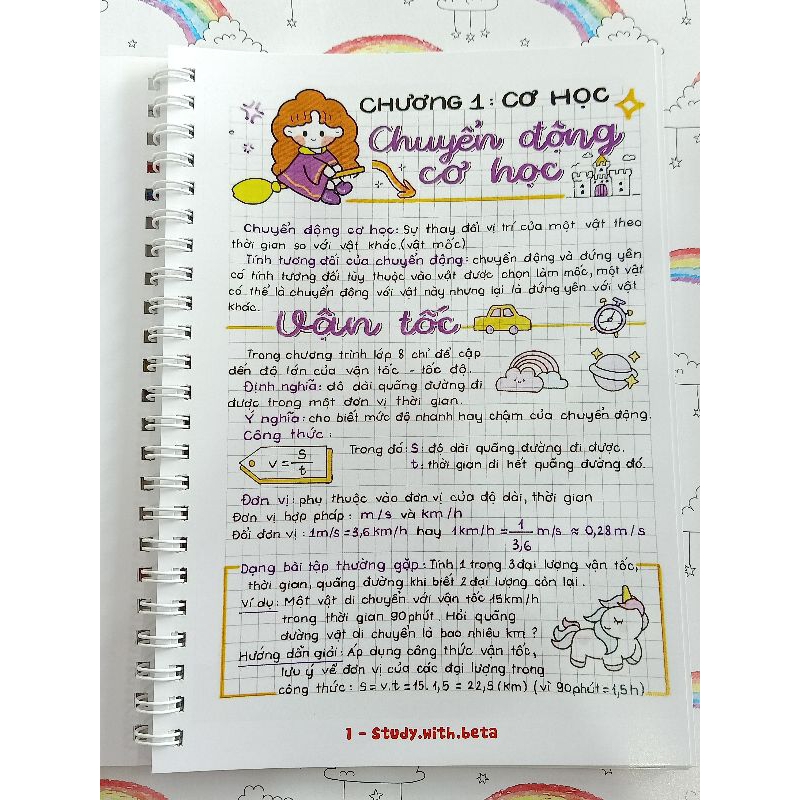 CHƯƠNG 1: CƠ HỌC
Chuyển động
cơ học
Chuyển động cơ học: Sự thay đổi vị trí của một vật theo
thời gian so với vật khác.(vật mốc)
Tính tương đối của chuyển động: chuyển động và đứng yên
có tính tương đối tùy thuộc vào vật được chọn làm mốc, một vật
có thể là chuyển động với vật này nhưng lại là đứng yên với vật
khác.
Vận tốc
Trong chương trình lớp 8 chỉ đề cập
đến độ lớn của vận tốc - tốc độ
Định nghĩa: độ dài quãng đường đi
được trong một đơn vị thời gian.
Ý nghĩa: cho biết mức độ nhanh hay chậm của chuyển động.
Công thức:
v = s/t
Trong đó S: độ dài quãng đường đi được.
t: thời gian đi hết quãng đường đó.
Đơn vị: phụ thuộc vào đơn vị của độ dài, thời gian
Đơn vị hợp pháp: m/s và km/h
Đổi đơn vị: 1m/s = 3,6 km/h hay 1km/h = 1/3,6 m/s ≈ 0,28 m/s
Dạng bài tập thường gặp: Tính 1 trong 3 đại lượng vận tốc,
thời gian, quãng đường khi biết 2 đại lượng còn lại.
Ví dụ: Một vật di chuyển với vận tốc 15km/h
trong thời gian 90 phút. Hỏi quãng
đường vật di chuyển là bao nhiêu km?
Hướng dẫn giải: Áp dụng công thức vận tốc,
lưu ý về đơn vị của các đại lượng trong
công thức: s = v.t = 15. 1,5 = 22,5 (km) (vì 90phút = 1,5h)
1 - Study.with.beta